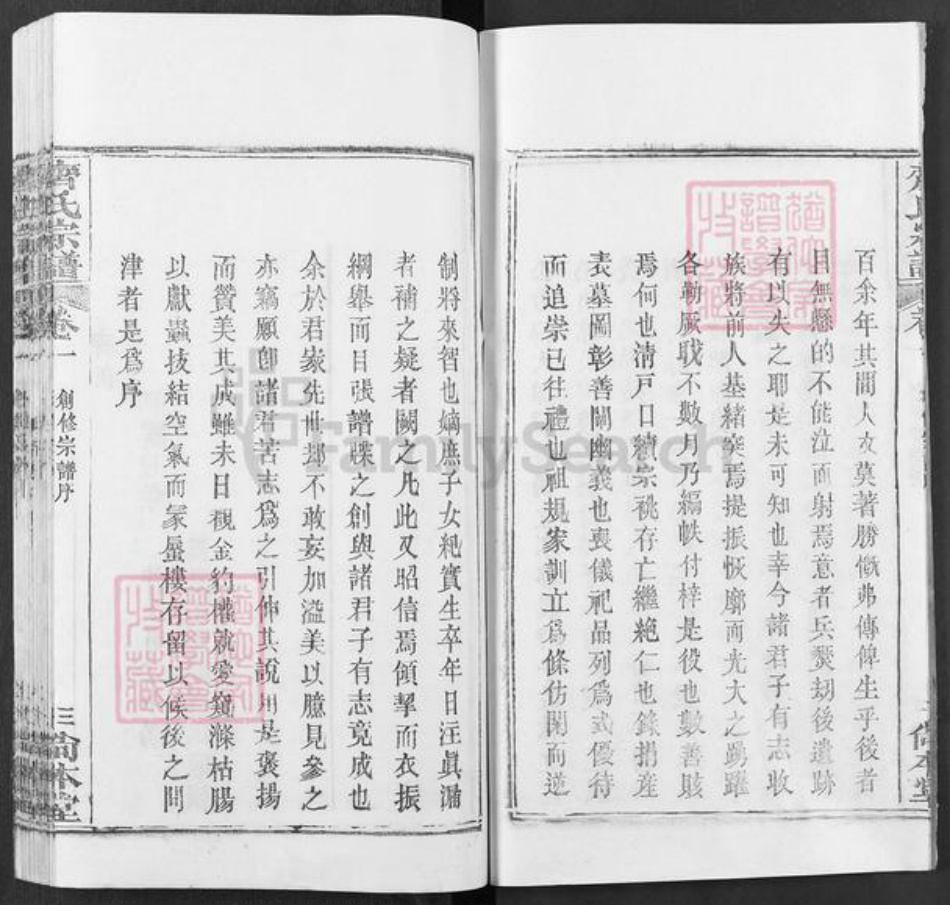 百余年其間人文莫著勝慨弗傳俾生乎後者
目無懸的不能泣面射焉意者兵燹刧後遺跡
有以失之耶是未可知也幸今諸君子有志收
族將前人基緒突焉提振恢廓而光大之踴躍
各勷厥職不數月乃編帙付梓是役也數善賅
焉何也淸戸口續宗祧存亡繼絶仁也錄捐産
表墓圖彰善闡幽義也喪儀祀品列爲式優待
而追崇已往禮也祖規家訓立爲條仿閑而逆
制將來智也嫡庶子女紀實生卒年日注眞漏
者補之疑者闕之凡此又昭信焉領挈而衣振
綱舉而目張譜牒之創與諸君子有志竟成也
余於君家先世却不敢妄加溢美以臆見參之
亦竊願卽諸君苦志爲之引伸其說用是褒揚
而贊美其成雖未日覩金豹權就愛窺滌枯腸
以獻蟲技結空氣而象蜃樓存留以候後之問
津者是爲序
齊氏宗譜
卷一
創修宗譜序
三
尙本堂
FamilySearch